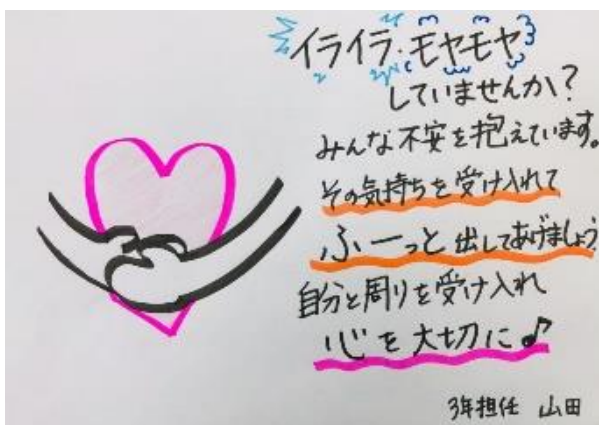 イライラ・モヤモヤ
していませんか?
みんな不安を抱えています。
その気持ちを受け入れて
ふーっと出してあげましょう
自分と周りを受け入れ
心を大切に♪
3年担任 山田